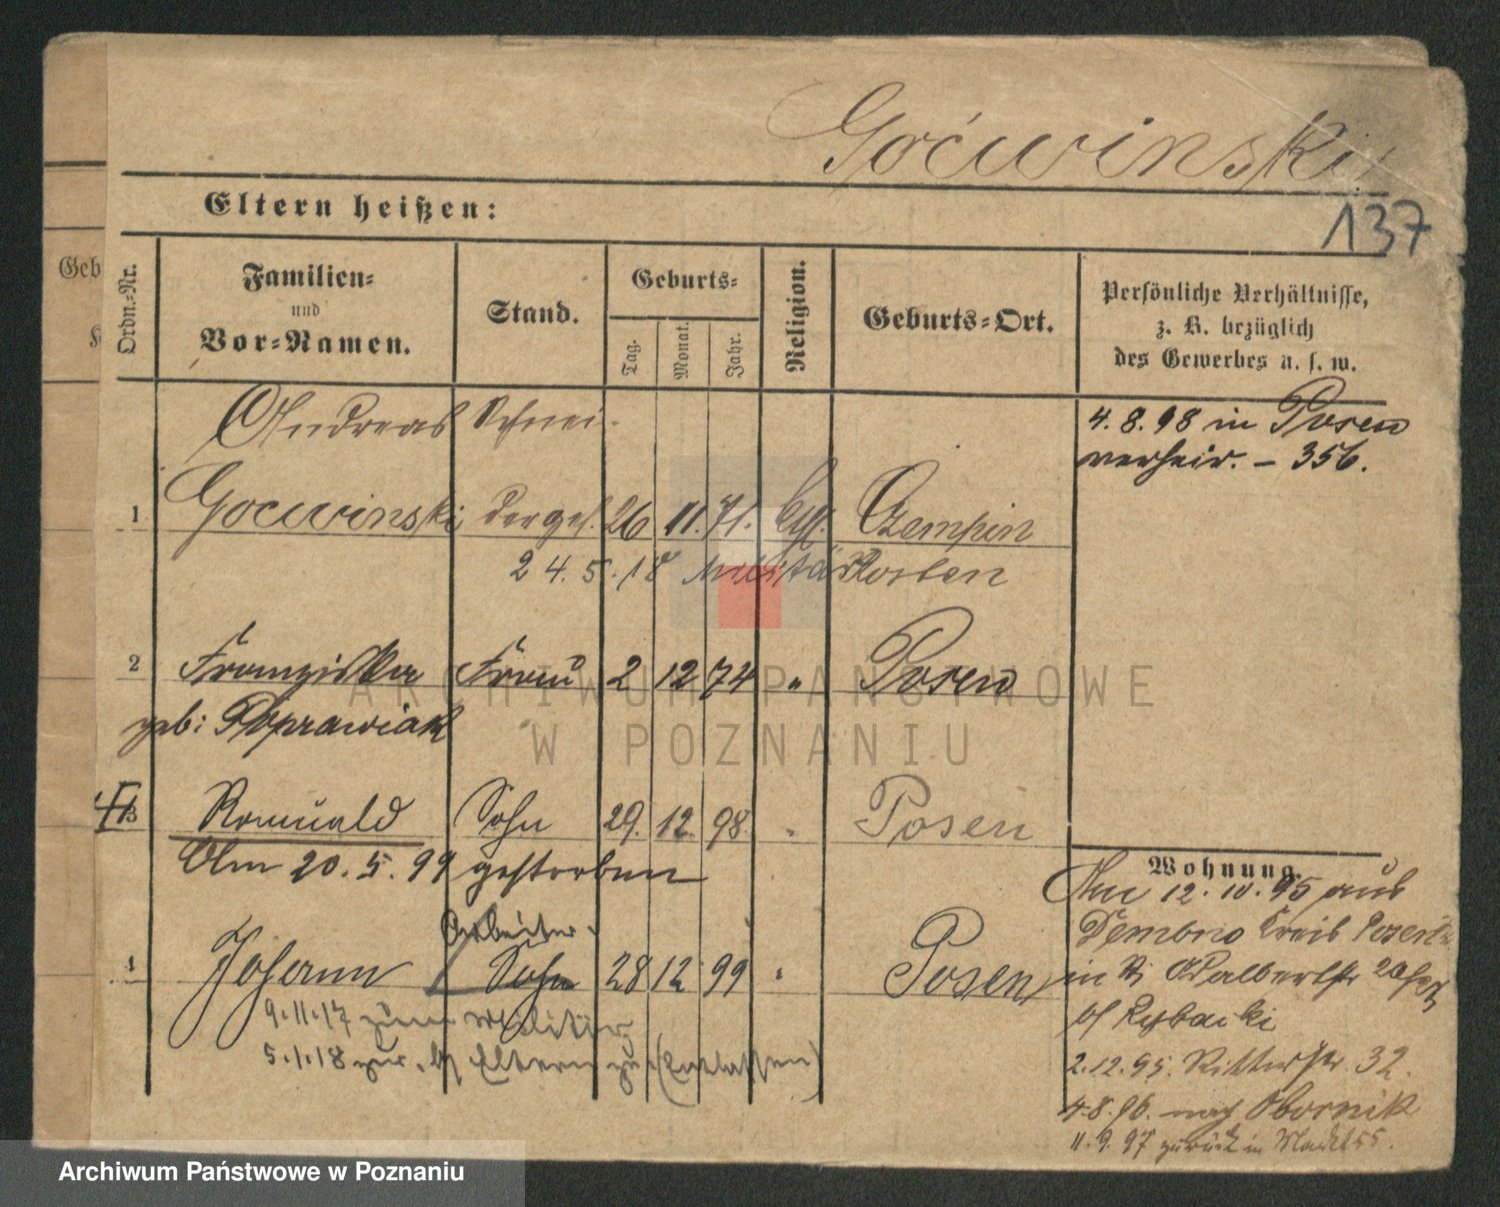 Goćwinski
137
Eltern heißen:
Geb
Ordn.-Nr.
Familien-
und
Vor-Namen.
Stand.
Geburts-
Tag.
Monat.
Jahr.
Religion.
Geburts-Ort.
Persönliche Verhältnisse,
z. B. bezüglich
des Gewerbes u. s. w.
Andreas Schnei-
1 Gocwinski derges. 26 11. 71. kath. Czempin
4. 8. 98 in Posen
verheir. – 356.
24. 5. 18 Militär Kosten
2 Franziska Frau 2 12 74 " Posen
geb: Poprawiak
3 Romuald Sohn 29. 12. 98 " Posen
Am 20. 5. 99 gestorben
Arbeiter
4 Johann Sohn 28 12 99 " Posen
9. 11. 17 zum Militär
5. 1. 18 zur. b/ Eltern (Entlassen)
Wohnung.
Am 12. 10. 95 aus
Dembno Kreis
in St Adalbertstr
b/ Rybacki
2. 12. 95. Ritterstr 32.
4. 8. 96. nach Obornik
11. 9. 97 zurück in
ARCHIWUM PAŃSTWOWE
W POZNANIU
Archiwum Państwowe w Poznaniu